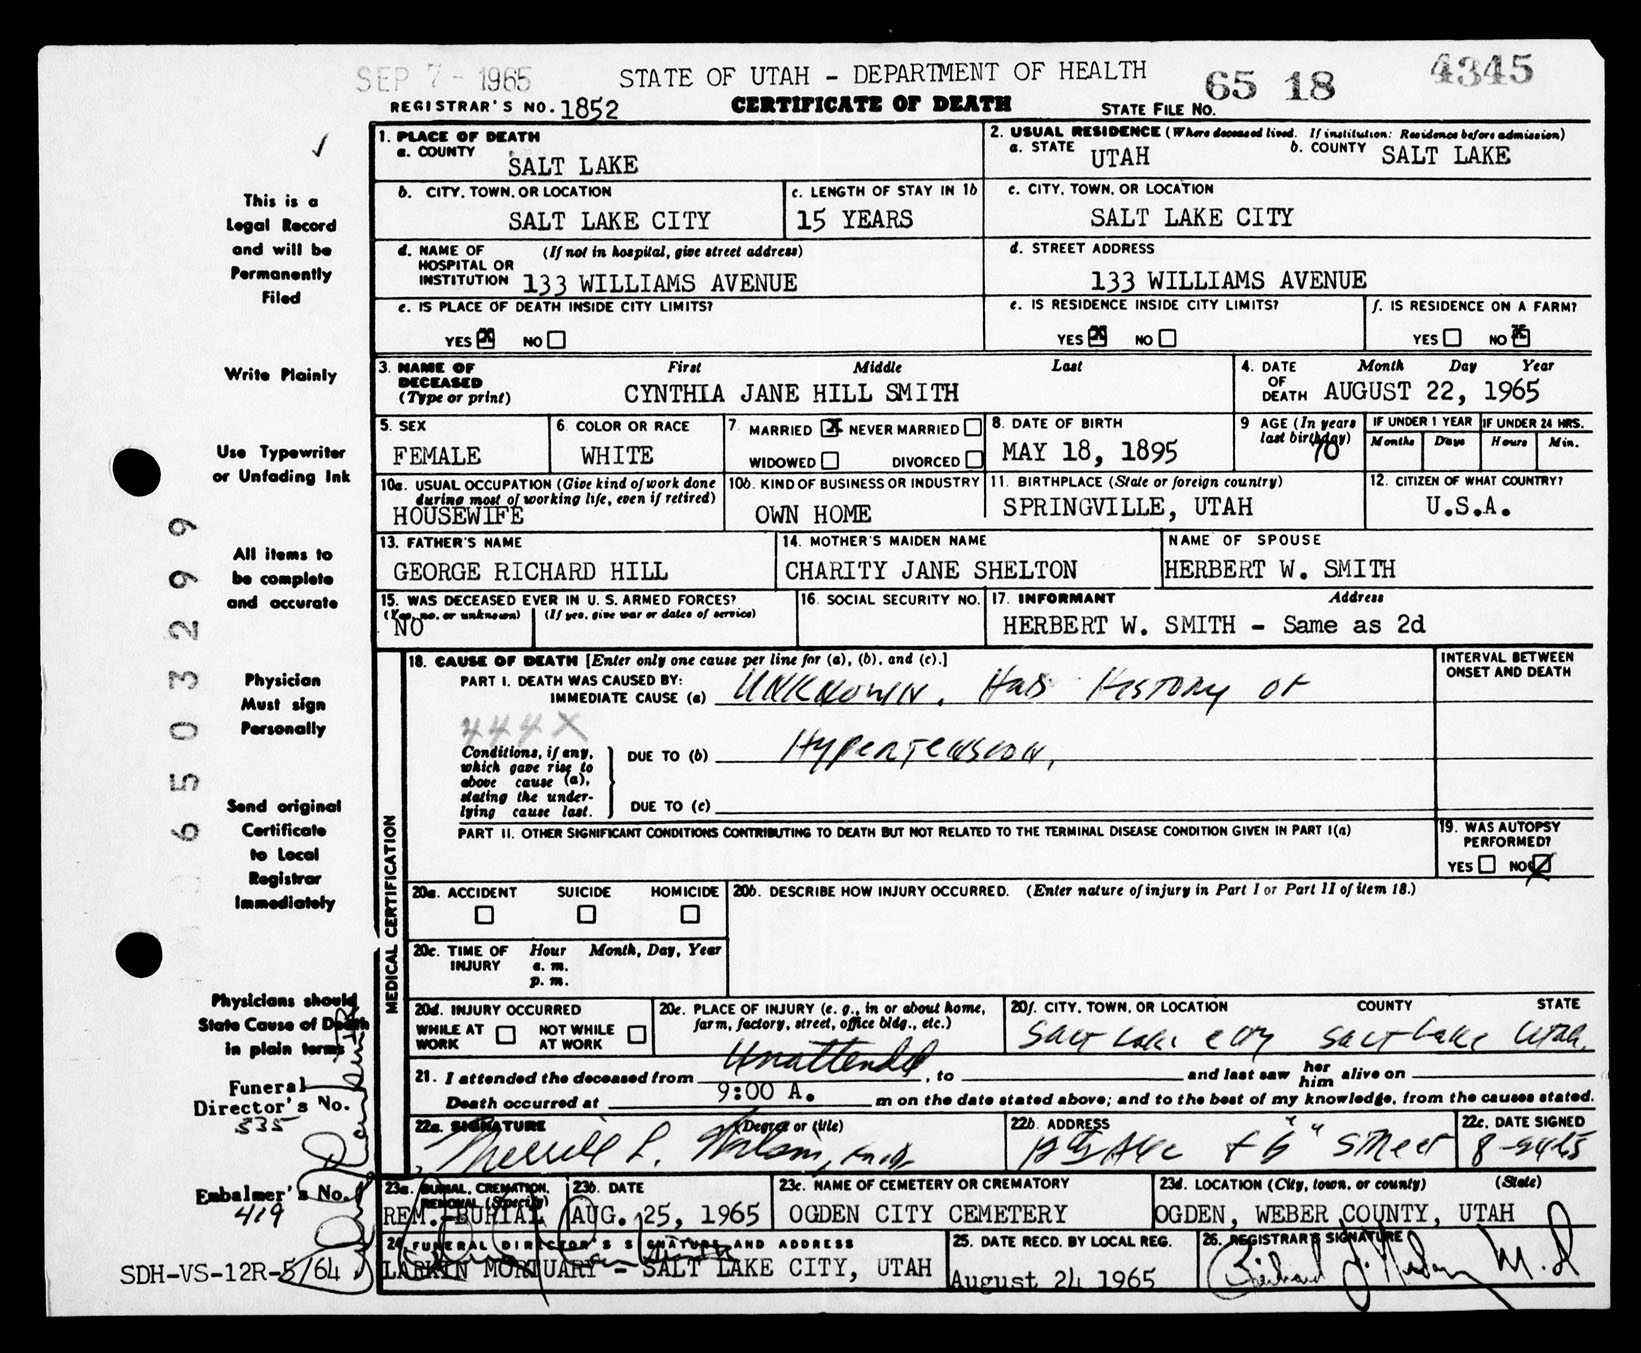 SEP 7 - 1965 STATE OF UTAH - DEPARTMENT OF HEALTH 65 18 4345
REGISTRAR'S NO. 1852 CERTIFICATE OF DEATH STATE FILE NO.
1. PLACE OF DEATH
a. COUNTY SALT LAKE
2. USUAL RESIDENCE (Where deceased lived. If institution: Residence before admission)
a. STATE UTAH b. COUNTY SALT LAKE
b. CITY, TOWN, OR LOCATION SALT LAKE CITY
c. LENGTH OF STAY IN 1b 15 YEARS
c. CITY, TOWN, OR LOCATION SALT LAKE CITY
d. NAME OF HOSPITAL OR INSTITUTION (If not in hospital, give street address) 133 WILLIAMS AVENUE
d. STREET ADDRESS 133 WILLIAMS AVENUE
e. IS PLACE OF DEATH INSIDE CITY LIMITS?
YES X NO
e. IS RESIDENCE INSIDE CITY LIMITS?
YES X NO
f. IS RESIDENCE ON A FARM?
YES NO X
3. NAME OF DECEASED (Type or print) First Middle Last
CYNTHIA JANE HILL SMITH
4. DATE OF DEATH Month Day Year
AUGUST 22, 1965
5. SEX FEMALE
6. COLOR OR RACE WHITE
7. MARRIED X NEVER MARRIED
WIDOWED DIVORCED
8. DATE OF BIRTH MAY 18, 1895
9 AGE (In years last birthday) 70
IF UNDER 1 YEAR Months Days
IF UNDER 24 HRS. Hours Min.
10a. USUAL OCCUPATION (Give kind of work done during most of working life, even if retired)
HOUSEWIFE
10b. KIND OF BUSINESS OR INDUSTRY OWN HOME
11. BIRTHPLACE (State or foreign country) SPRINGVILLE, UTAH
12. CITIZEN OF WHAT COUNTRY? U.S.A.
13. FATHER'S NAME GEORGE RICHARD HILL
14. MOTHER'S MAIDEN NAME CHARITY JANE SHELTON
NAME OF SPOUSE HERBERT W. SMITH
15. WAS DECEASED EVER IN U. S. ARMED FORCES?
(Yes, no, or unknown) (If yes, give war or dates of service)
NO
16. SOCIAL SECURITY NO.
17. INFORMANT Address
HERBERT W. SMITH - Same as 2d
MEDICAL CERTIFICATION
18. CAUSE OF DEATH [Enter only one cause per line for (a), (b), and (c).]
INTERVAL BETWEEN ONSET AND DEATH
PART I. DEATH WAS CAUSED BY:
IMMEDIATE CAUSE (a) UNKNOWN. Has History of
444X
Conditions, if any, which gave rise to above cause (a), stating the underlying cause last.
DUE TO (b) Hypertension,
DUE TO (c)
PART II. OTHER SIGNIFICANT CONDITIONS CONTRIBUTING TO DEATH BUT NOT RELATED TO THE TERMINAL DISEASE CONDITION GIVEN IN PART I(a)
19. WAS AUTOPSY PERFORMED?
YES NO
20a. ACCIDENT SUICIDE HOMICIDE
20b. DESCRIBE HOW INJURY OCCURRED. (Enter nature of injury in Part I or Part II of item 18.)
20c. TIME OF INJURY Hour Month, Day, Year
a. m.
p. m.
20d. INJURY OCCURRED
WHILE AT WORK NOT WHILE AT WORK
20e. PLACE OF INJURY (e. g., in or about home, farm, factory, street, office bldg., etc.)
20f. CITY, TOWN, OR LOCATION COUNTY STATE
Salt Lake City Salt Lake Utah.
21. I attended the deceased from Unattended, to and last saw her him alive on
Death occurred at 9:00 A. m on the date stated above; and to the best of my knowledge, from the causes stated.
22a. SIGNATURE (Degree or title)
Merrill L.
22b. ADDRESS
Street
22c. DATE SIGNED
8-24-65
23a. BURIAL, CREMATION, REMOVAL (Specify)
REM.-BURIAL
23b. DATE
AUG. 25, 1965
23c. NAME OF CEMETERY OR CREMATORY
OGDEN CITY CEMETERY
23d. LOCATION (City, town, or county) (State)
OGDEN, WEBER COUNTY, UTAH
24. FUNERAL DIRECTOR'S SIGNATURE AND ADDRESS
LARKIN MORTUARY - SALT LAKE CITY, UTAH
25. DATE RECD. BY LOCAL REG.
August 24 1965
26. REGISTRAR'S SIGNATURE
M.D
This is a
Legal Record
and will be
Permanently
Filed
Write Plainly
Use Typewriter
or Unfading Ink
All items to
be complete
and accurate
Physician
Must sign
Personally
Send original
Certificate
to Local
Registrar
Immediately
Physicians should
State Cause of Death
in plain terms
Funeral
Director's No.
535
Embalmer's No.
419
SDH-VS-12R-5/64
6 5 0 3 2 9 9